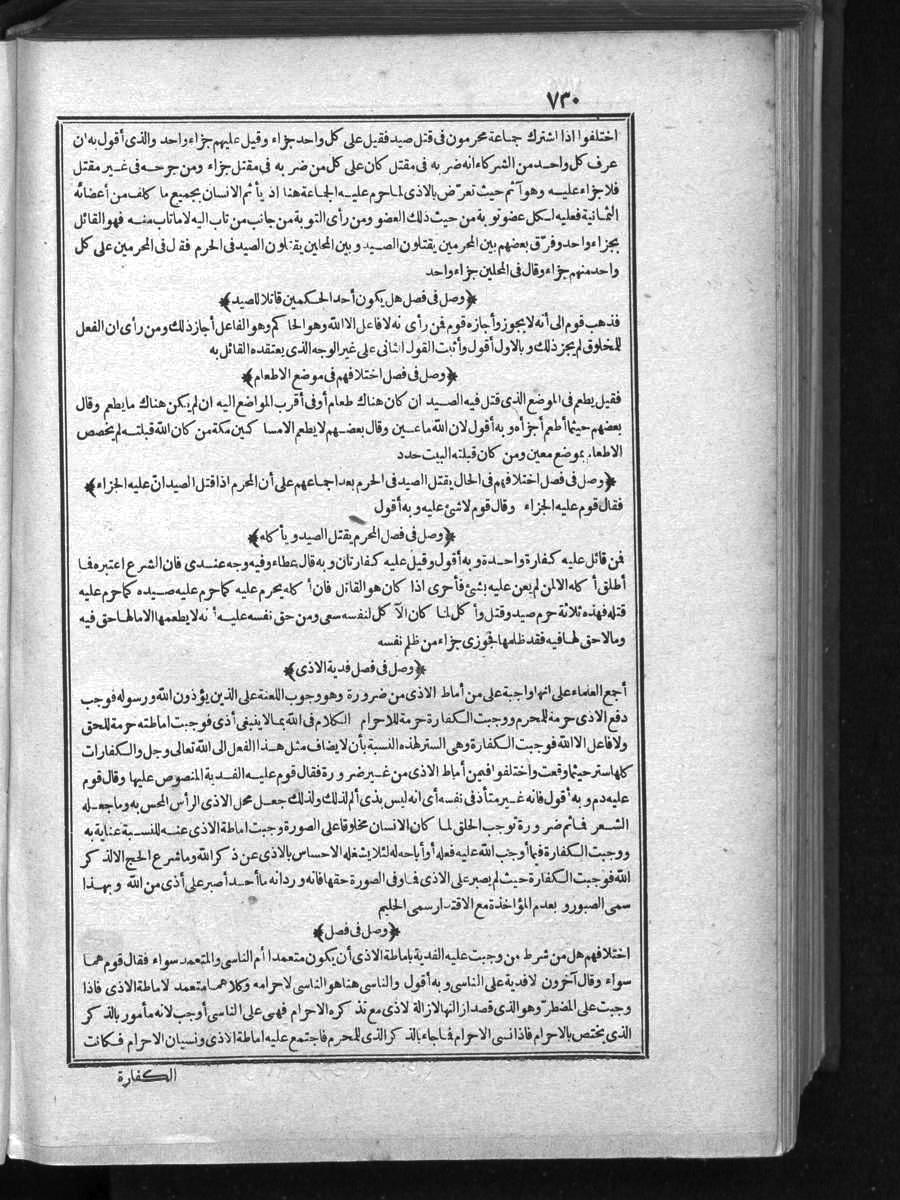 ٧٣٠
اختلفوا اذا اشترك جماعة محرمون فى قتل صيد فقيل على كل واحد جزاء وقيل عليهم جزاء واحد والذى أقول به ان
عرف كل واحد من الشركاء انه ضربه فى مقتل كان على كل من ضربه فى مقتل جزاء ومن جرحه فى غير مقتل
فلاجزاء عليه وهو آثم حيث تعرّض بالاذى لما حرم عليه الجماعة هنا اذ يأثم الانسان بجميع ما كلف من أعضائه
الثمانية فعليه لكل عضو توبة من حيث ذلك العضو ومن رأى التوبة من جانب من تاب اليه لا ما تاب منه فهو القائل
بجزاء واحد وفرّق بعضهم بين المحرمين يقتلون الصيد وبين المحلين يقتلون الصيد فى الحرم فقال فى المحرمين على كل
واحد منهم جزاء وقال فى المحلين جزاء واحد
﴿وصل فى فصل هل يكون أحد الحكمين قاتلا للصيد﴾
فذهب قوم الى أنه لا يجوز وأجازه قوم فمن رأى نه لا فاعل الا الله وهو الحاكم وهو الفاعل أجاز ذلك ومن رأى ان الفعل
للمخلوق لم يجز ذلك وبالاول أقول وأثبت القول الثانى على غير الوجه الذى يعتقده القائل به
﴿وصل فى فصل اختلافهم فى موضع الاطعام﴾
فقيل يطعم فى الموضع الذى قتل فيه الصيد ان كان هناك طعام أو فى أقرب المواضع اليه ان لم يكن هناك ما يطعم وقال
بعضهم حيثما أطعم أجزأه وبه أقول لان الله ما عين وقال بعضهم لا يطعم الامساكين مكة من كان الله قبلته لم يخصص
الاطعام بموضع معين ومن كان قبلته البيت حدد
﴿وصل فى فصل اختلافهم فى الحال يقتل الصيد فى الحرم بعد اجماعهم على أن المحرم اذا قتل الصيد انّ عليه الجزاء﴾
فقال قوم عليه الجزاء وقال قوم لا شئ عليه وبه أقول
﴿وصل فى فصل المحرم يقتل الصيد ويأكله﴾
فمن قائل عليه كفارة واحدة وبه أقول وقيل عليه كفارتان وبه قال عطاء وفيه وجه عندى فان الشرع اعتبره فما
أطلق أكله الا لمن لم يعن عليه بشئ فأحرى اذا كان هو القاتل فان أكله يحرم عليه كما حرم عليه صيده كما حرم عليه
قتله فهذه ثلاثة حرم صيد وقتل وأكل لما كان الآكل لنفسه سعى ومن حق نفسه عليه أنه لا يطعمها الا ما لها حق فيه
وما لا حق لها فيه فقد ظلمها فجوزى جزاء من ظلم نفسه
﴿وصل فى فصل فدية الاذى﴾
أجمع العلماء على انها واجبة على من أماط الاذى من ضرورة وهو وجوب اللعنة على الذين يؤذون الله ورسوله فوجب
دفع الاذى حرمة للمحرم ووجبت الكفارة حرمة للاحرام الكلام فى الله بما لا ينبغى أذى فوجبت اماطته حرمة للحق
ولا فاعل الا الله فوجبت الكفارة وهى الستر لهذه النسبة بأن لا يضاف مثل هذا الفعل الى الله تعالى وجل والكفارات
كلها ستر حيثما وقعت واختلفوا فيمن أماط الاذى من غير ضرورة فقال قوم عليه الفدية المنصوص عليها وقال قوم
عليه دم وبه أقول فانه غير متأذ فى نفسه أى انه ليس بذى ألم لذلك ولذلك جعل محل الاذى الرأس المحس به وما جعله
الشعر فاثم ضرورة توجب الحلق لما كان الانسان مخلوقا على الصورة وجبت اماطة الاذى عنه للنسبة عناية به
ووجبت الكفارة فيما أوجب الله عليه فعله أو أباحه له لئلا يشغله الاحساس بالاذى عن ذكر الله وما شرع الحج الا لذكر
الله فوجبت الكفارة حيث لم يصبر على الاذى فما وفى الصورة حقها فانه ورد انه ما أحد أصبر على أذى من الله وبهذا
سمى الصبور وبعدم المؤاخذة مع الاقتدار سمى الحليم
﴿وصل فى فصل﴾
اختلافهم هل من شرط من وجبت عليه الفدية باماطة الاذى أن يكون متعمدا أم الناسى والمتعمد سواء فقال قوم هما
سواء وقال آخرون لا فدية على الناسى وبه أقول والناسى هنا هو الناسى لاحرامه وكلاهما متعمد لاماطة الاذى فاذا
وجبت على المضطرّ وهو الذى قصد ازالتها لازالة لاذى مع تذكره الاحرام فهى على الناسى أوجب لانه مأمور بالذكر
الذى يختص بالاحرام فاذا نسى الاحرام فما جاء بالذكر الذى للمحرم فاجتمع عليه اماطة الاذى ونسيان الاحرام فكانت
الكفارة